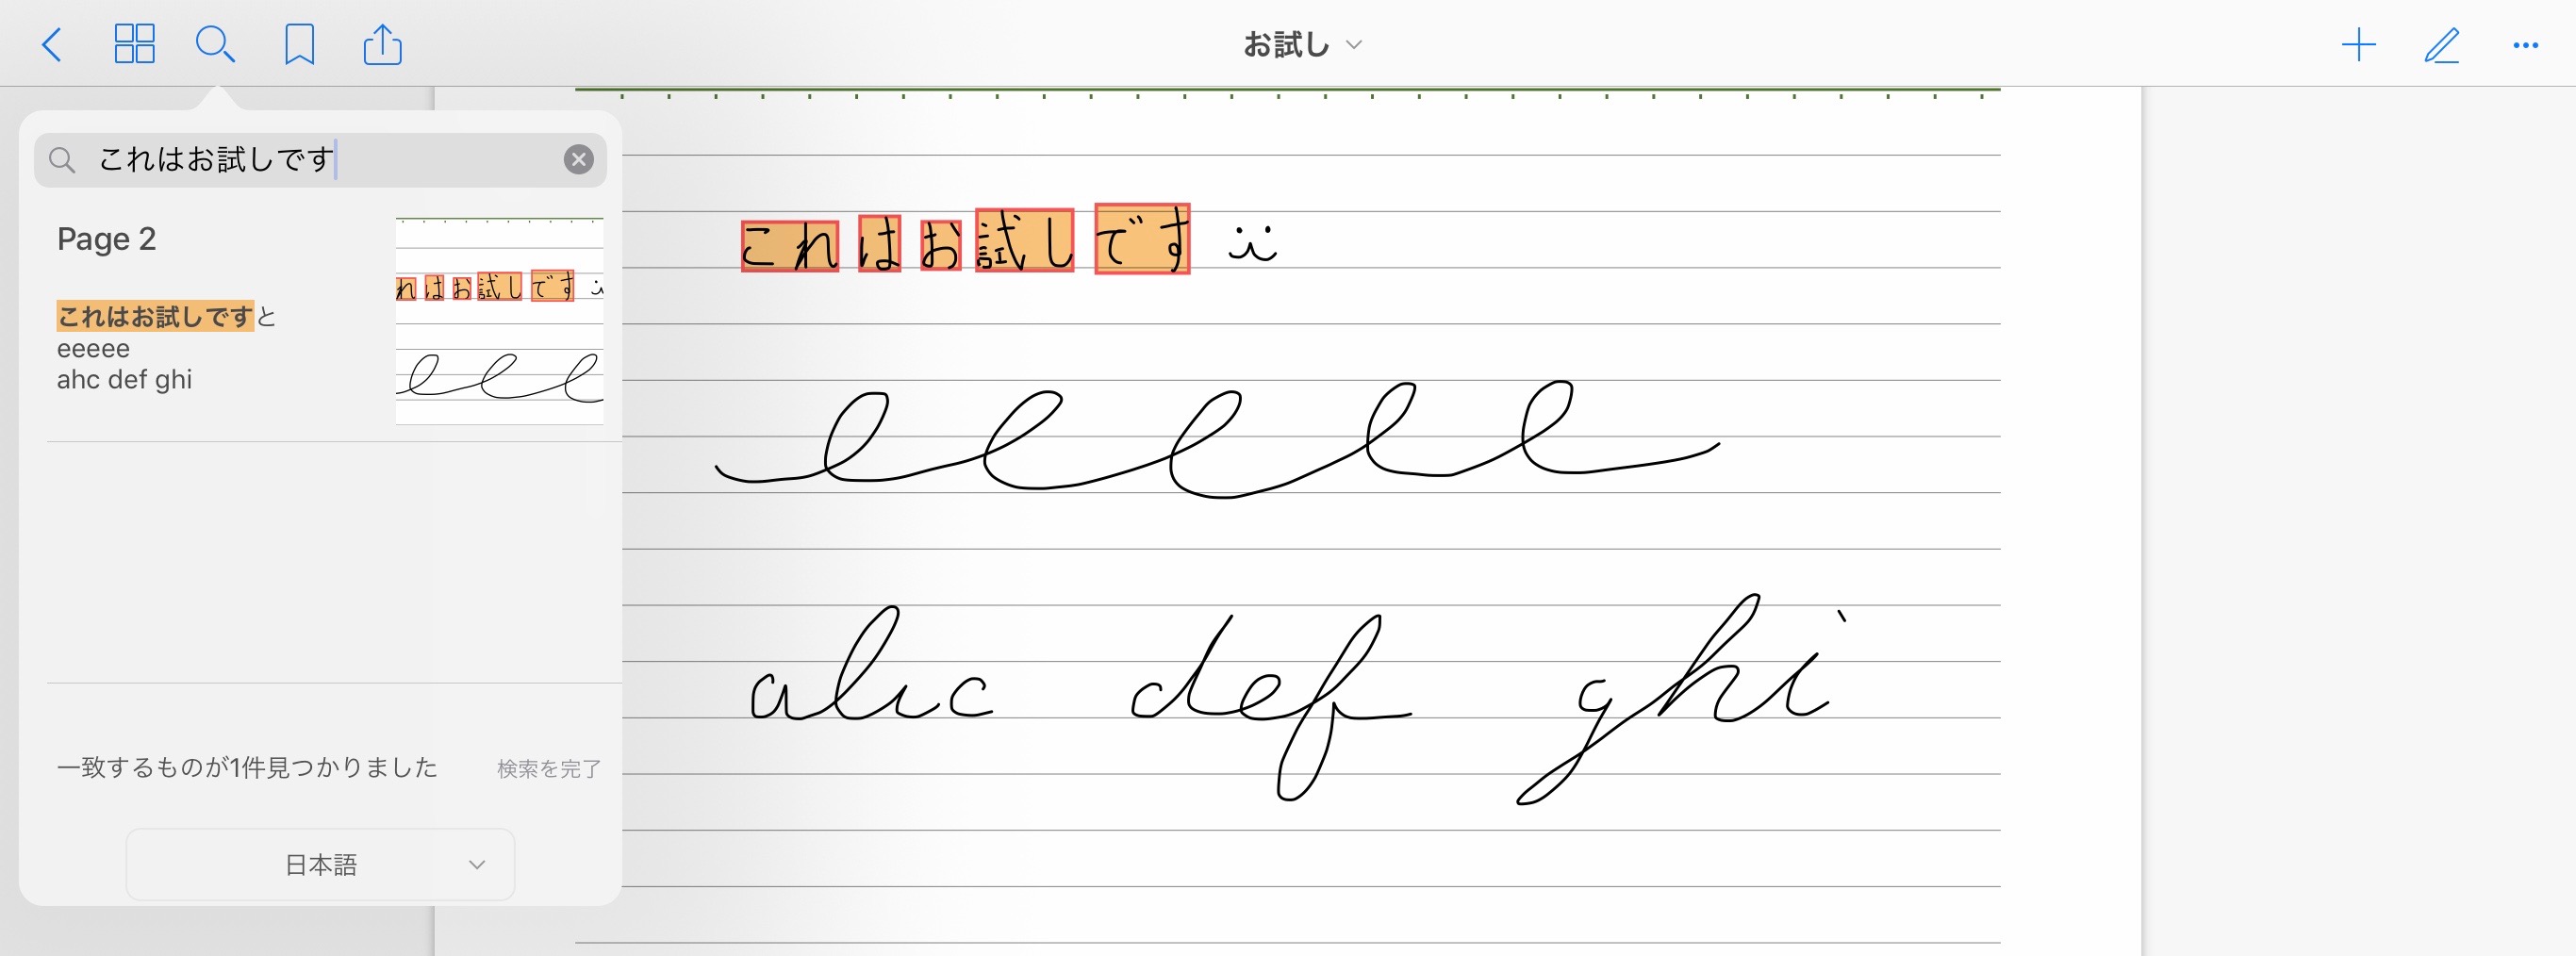 お試し
これはお試しです
Page 2
これはお試しですと
eeeee
ahc def ghi
れはお試しです
一致するものが1件見つかりました
検索を完了
日本語
これはお試しです
eeeee
abc def ghi